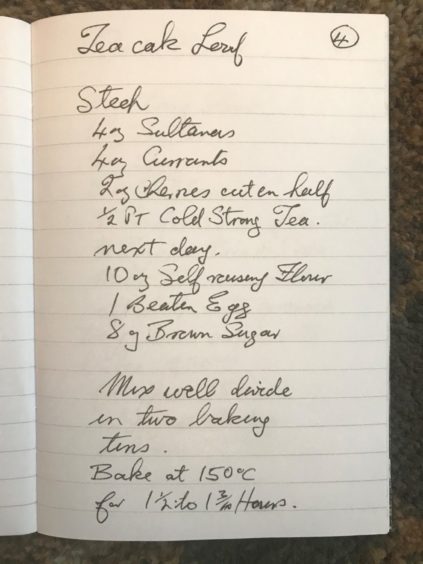 Tea cak Loaf
4
Steep
4oz Sultanas
4oz Currants
2oz Cherries cut en half
½ PT Cold Strong Tea.
next day.
10 oz Self raising Flour
1 Beaten Egg
8 oz Brown Sugar
Mix well divide
in two baking
tins.
Bake at 150°C
for 1½ to 1 Hours.